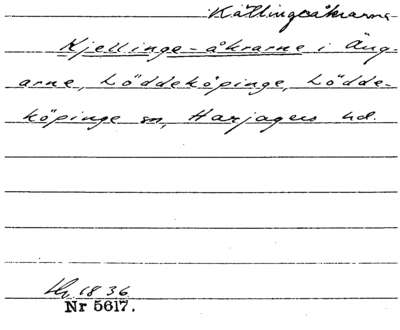 Källingeåkrarna
Kjellinge-åkrarne i Äng-
arne, Löddeköpinge, Lödde-
köpinge sn, Harjagers hd.
1836
Nr 5617.